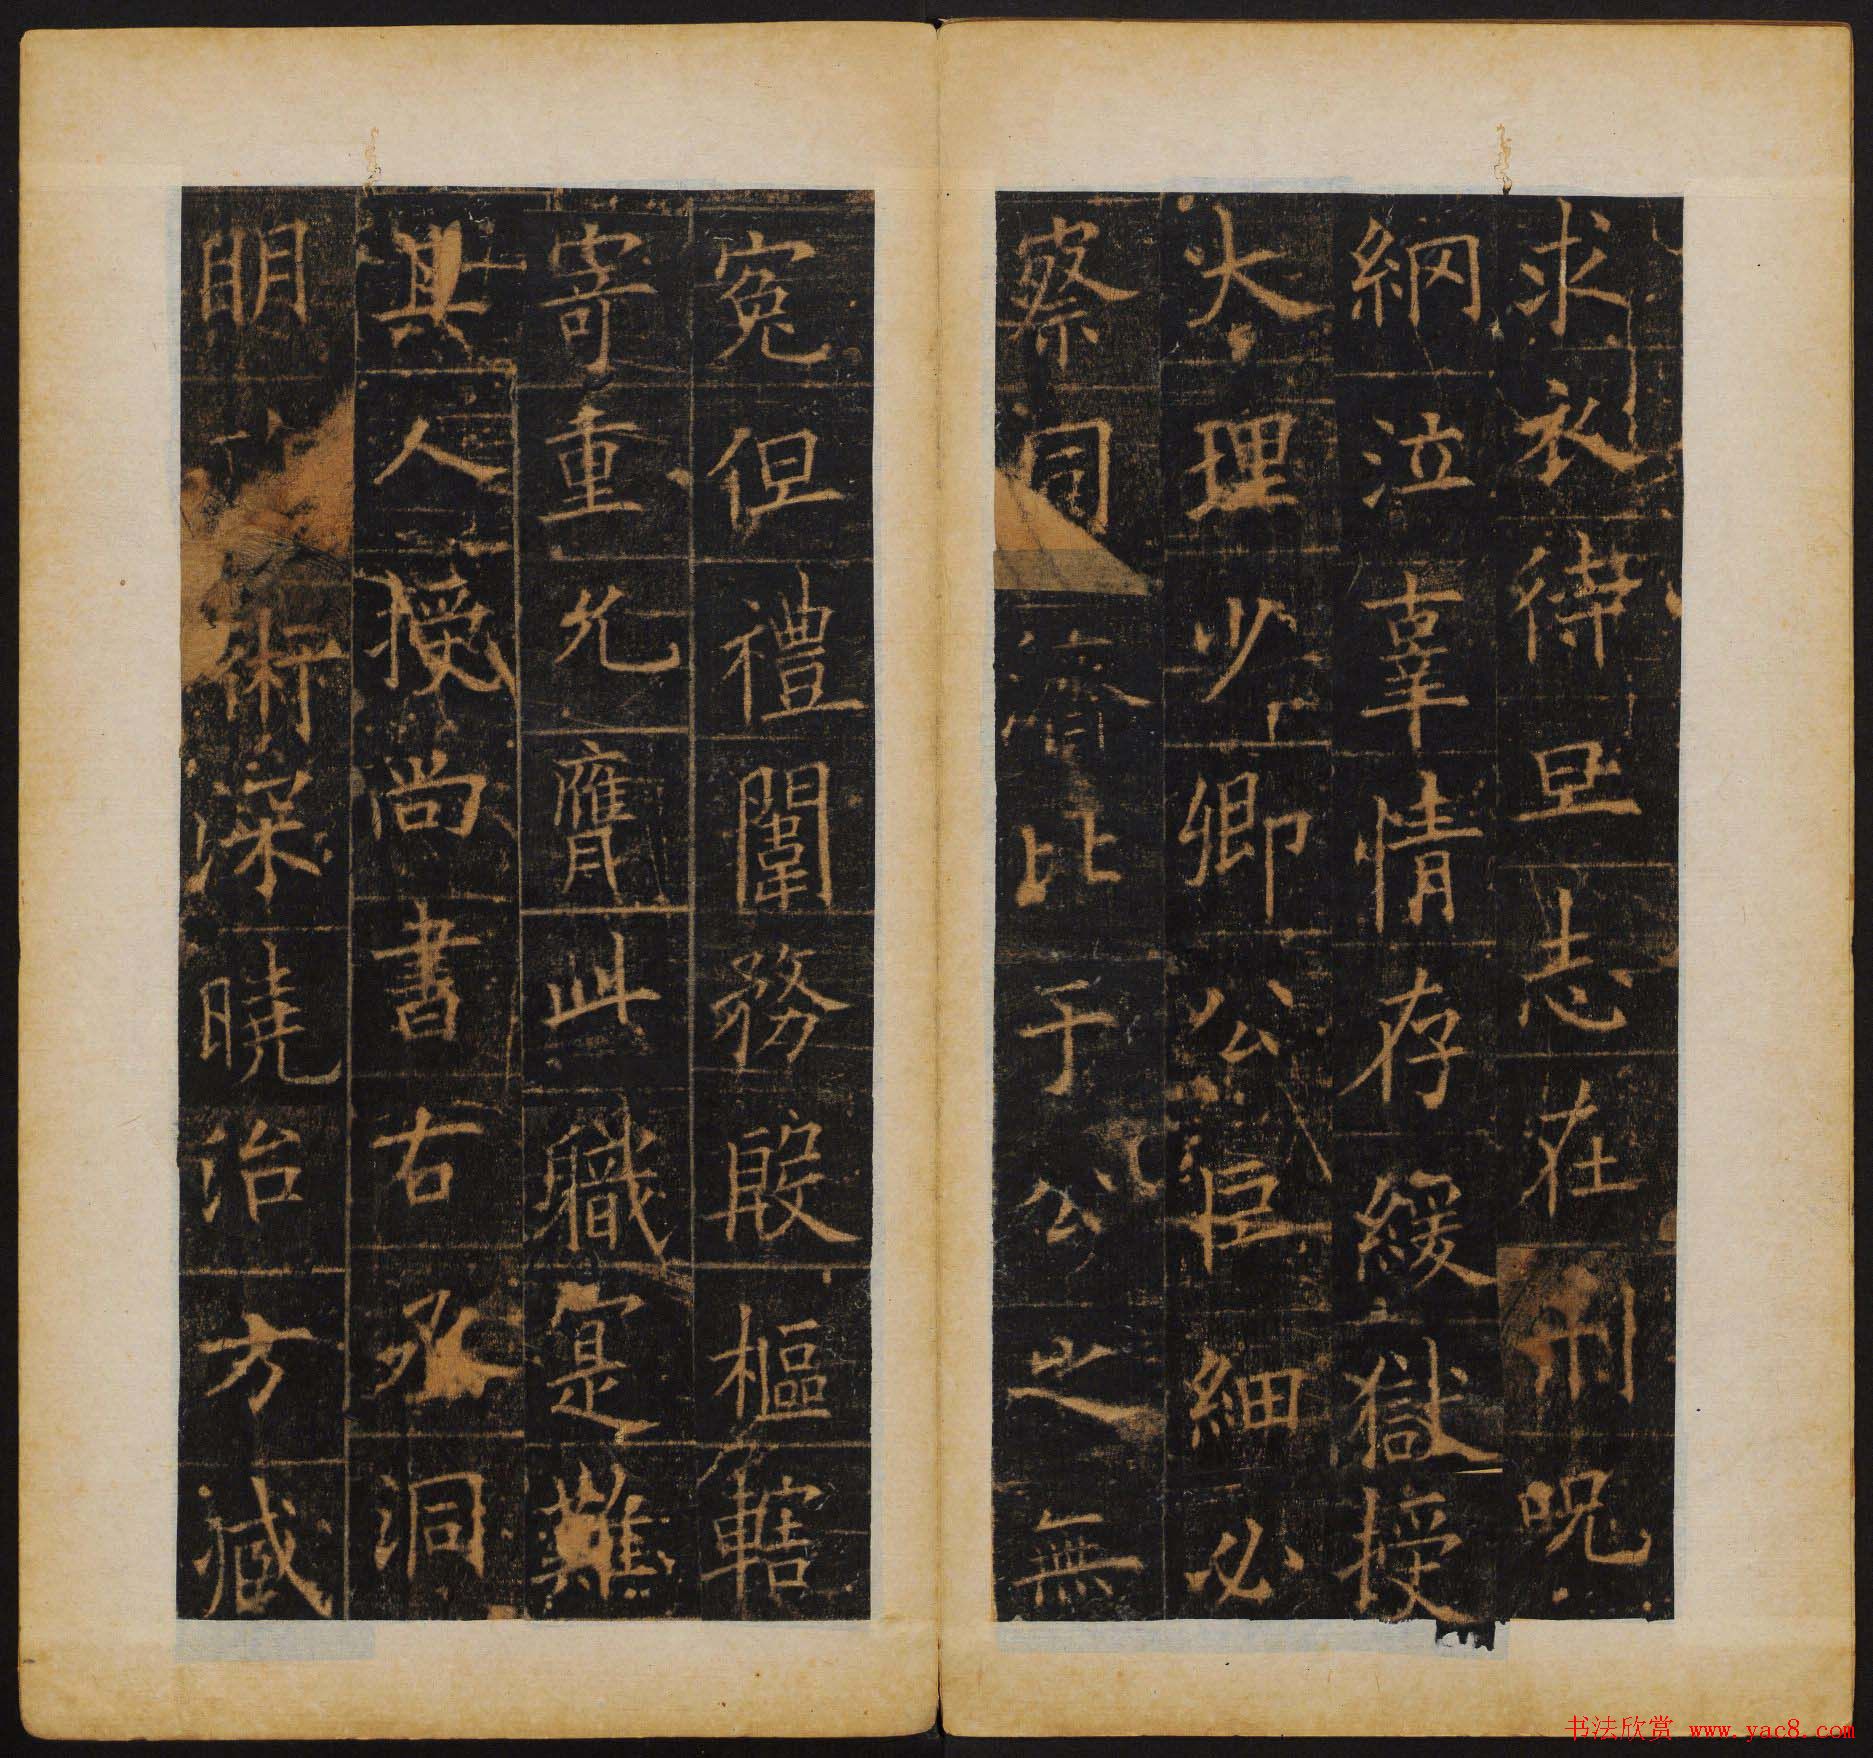 求衣待旦志在刑呪
網泣辜情存緩獄授
大理少卿公臣細必
察同濟比于公之無
寃但禮闈務殷樞轄
寄重允膺此職寔難
其人授尚書右丞洞
明術深曉治方臧
书法欣赏 www.yac8.com